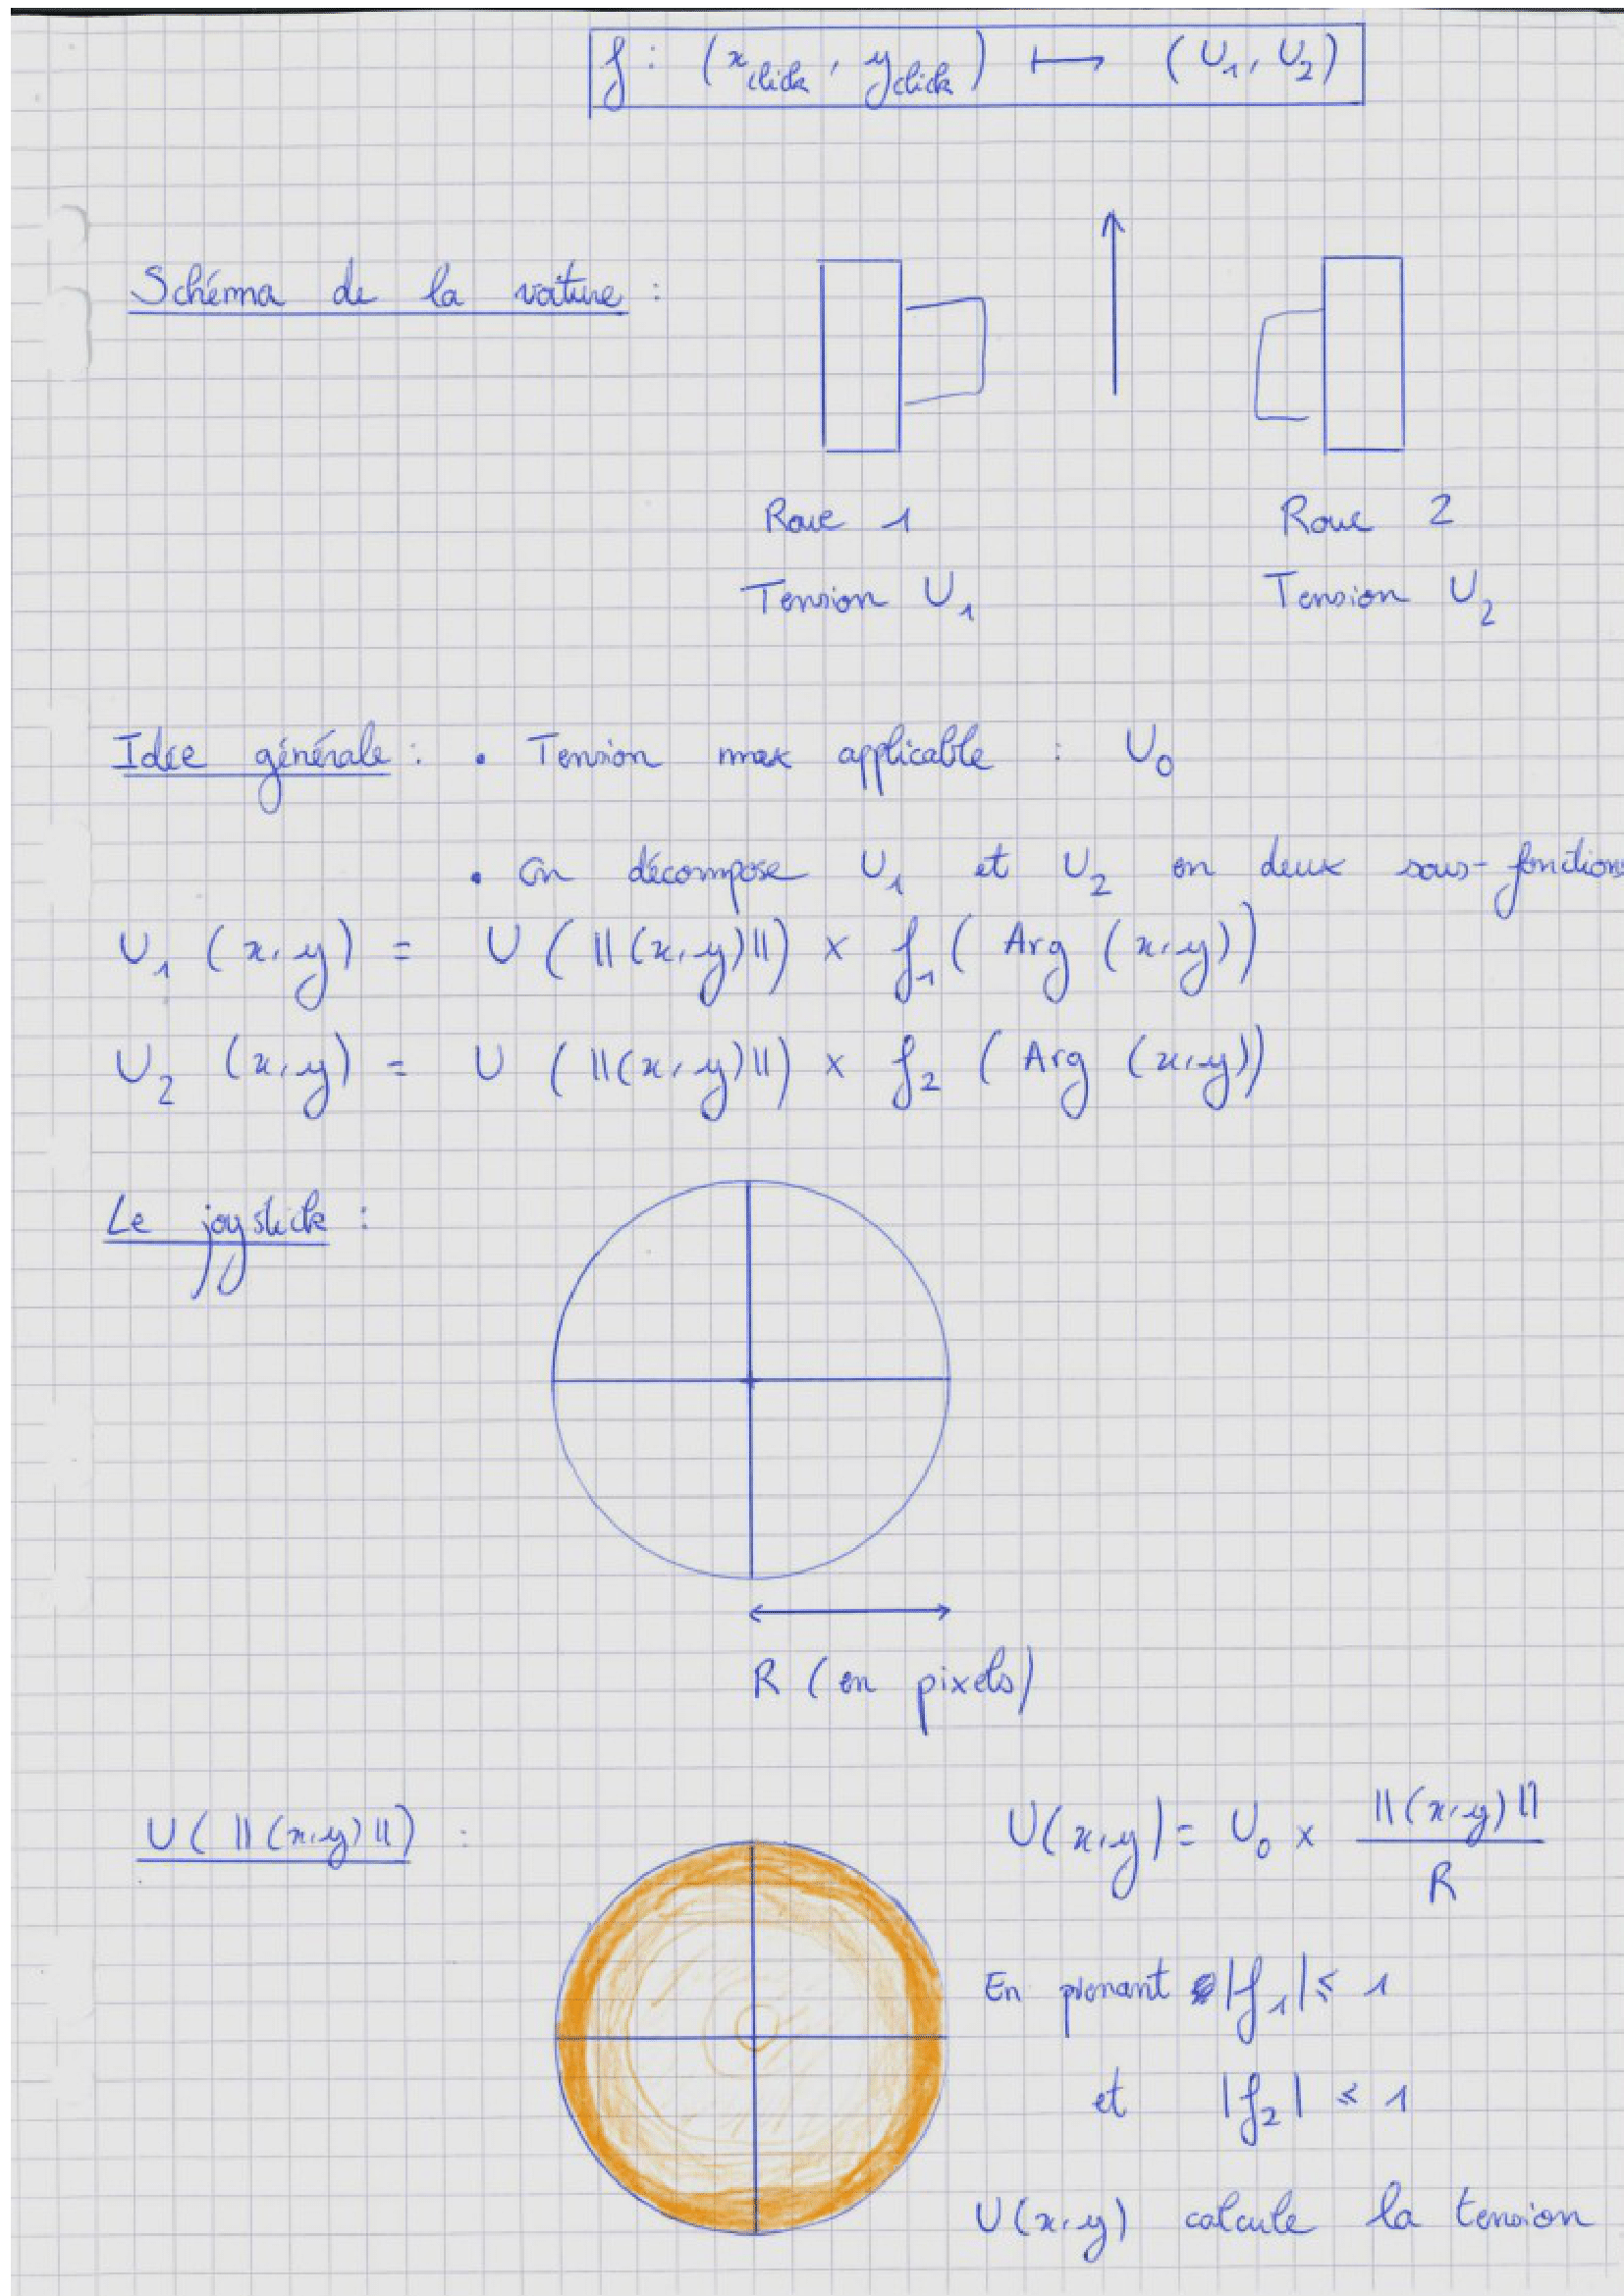 f : (x_click, y_click) ⟼ (U_1, U_2)
Schéma de la voiture :
Roue 1 Roue 2
Tension U_1 Tension U_2
Idée générale : • Tension max applicable : U_0
• On décompose U_1 et U_2 en deux sous-fonctions
U_1 (x,y) = U (||(x,y)||) × f_1 ( Arg (x,y))
U_2 (x,y) = U (||(x,y)||) × f_2 ( Arg (x,y))
Le joystick :
R (en pixels)
U( ||(x,y)||) : U(x,y) = U_0 × ||(x,y)|| / R
En prenant |f_1| ≤ 1
et |f_2| ≤ 1
U(x,y) calcule la tension